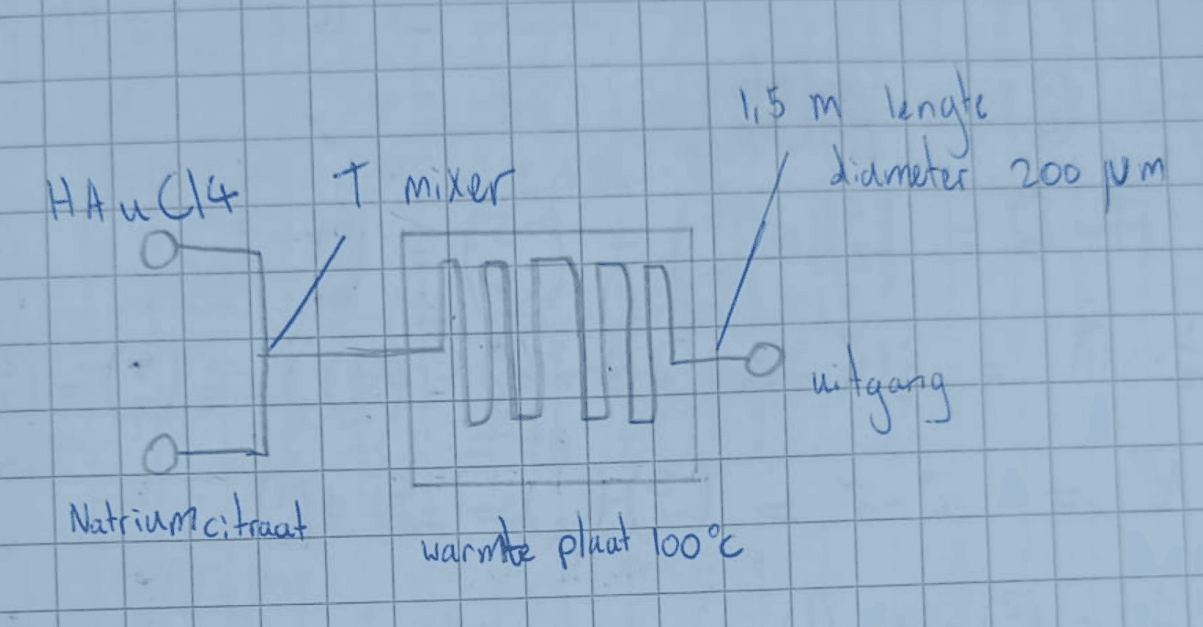 1,5 m lengte
diameter 200 µm
HAuCl4
T mixer
uitgang
Natriumcitraat
warmte plaat 100°C